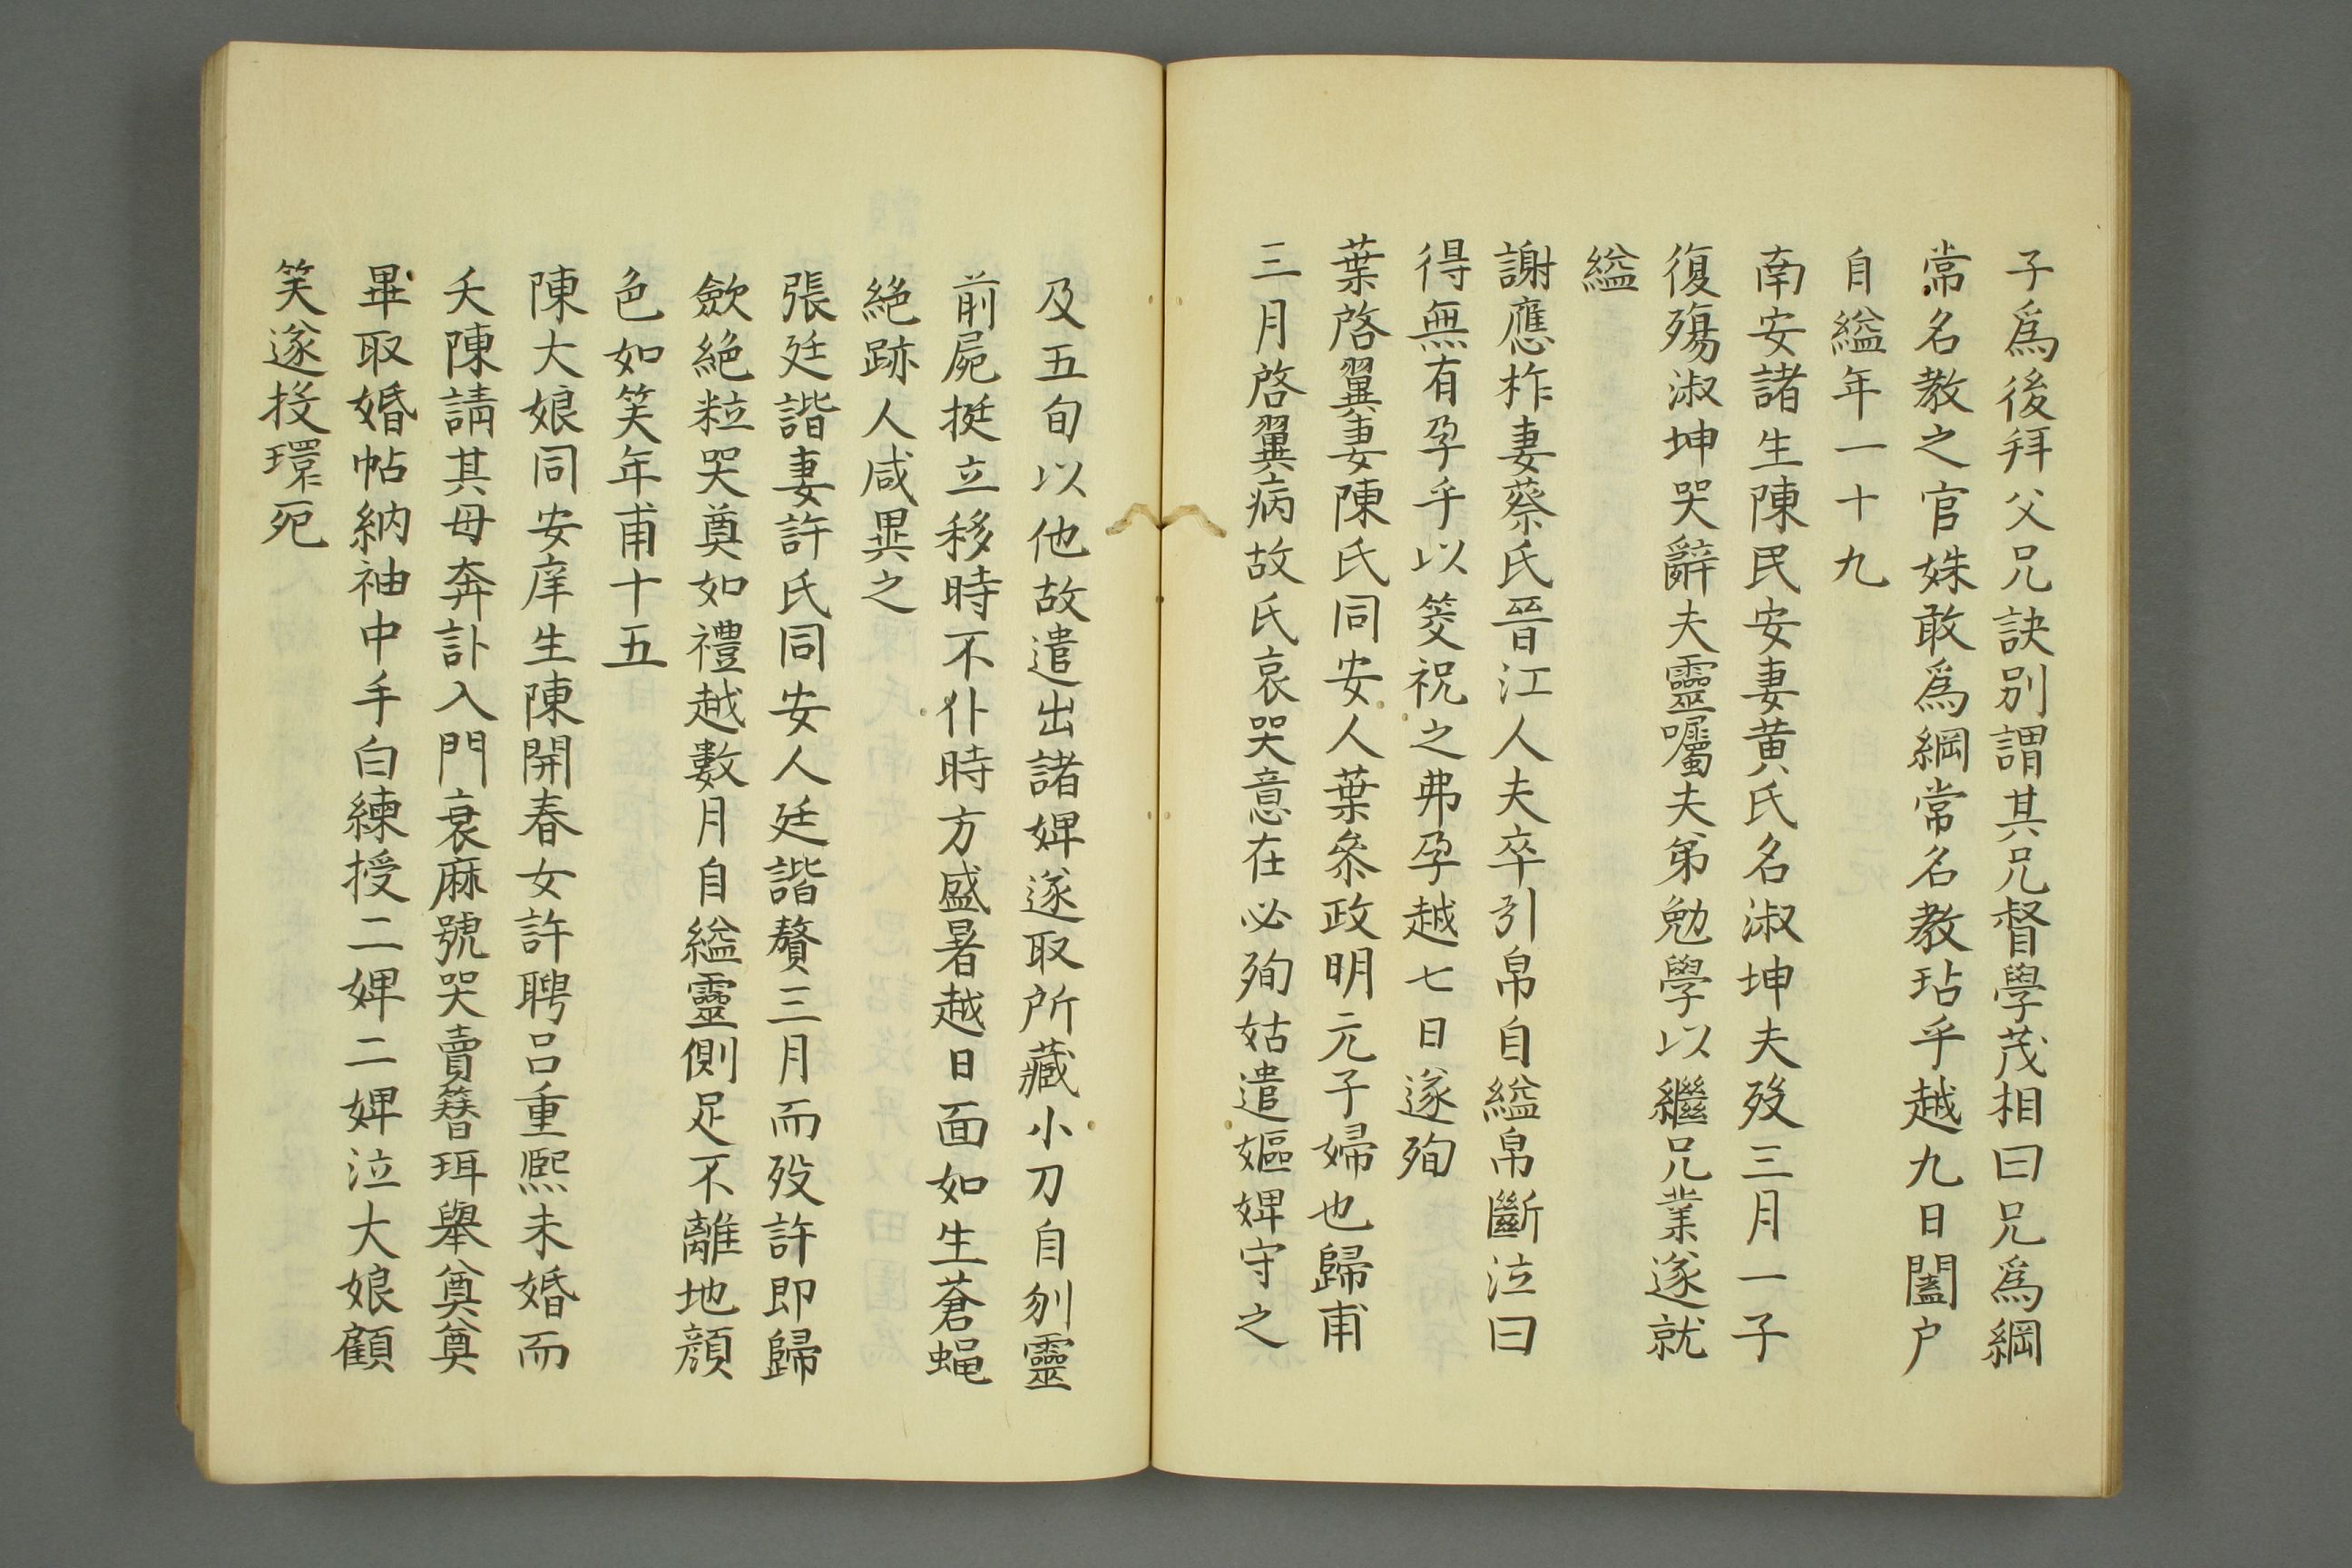 子爲後拜父兄訣别謂其兄督學茂相曰兄爲綱
常名教之官姝敢爲綱常名教玷乎越九日闔户
自縊年一十九
南安諸生陳民安妻黄氏名淑坤夫歿三月一子
復殤淑坤哭辭夫靈囑夫弟勉學以繼兄業遂就
縊
謝應柞妻蔡氏晉江人夫卒引帛自縊帛斷泣曰
得無有孕乎以筊祝之弗孕越七日遂殉
葉啓翼妻陳氏同安人葉叅政明元子婦也歸甫
三月啓翼病故氏哀哭意在必殉姑遣嫗婢守之
及五旬以他故遣出諸婢遂取所藏小刀自刎靈
前屍挺立移時不仆時方盛暑越日面如生蒼蝇
絶跡人咸異之
張廷諧妻許氏同安人廷諧贅三月而歿許即歸
歛絶粒哭奠如禮越數月自縊靈側足不離地顔
色如笑年甫十五
陳大娘同安庠生陳開春女許聘吕重熙未婚而
夭陳請其母奔訃入門衰麻號哭賣簪珥舉奠奠
畢取婚帖納袖中手白練授二婢二婢泣大娘顧
笑遂投環死